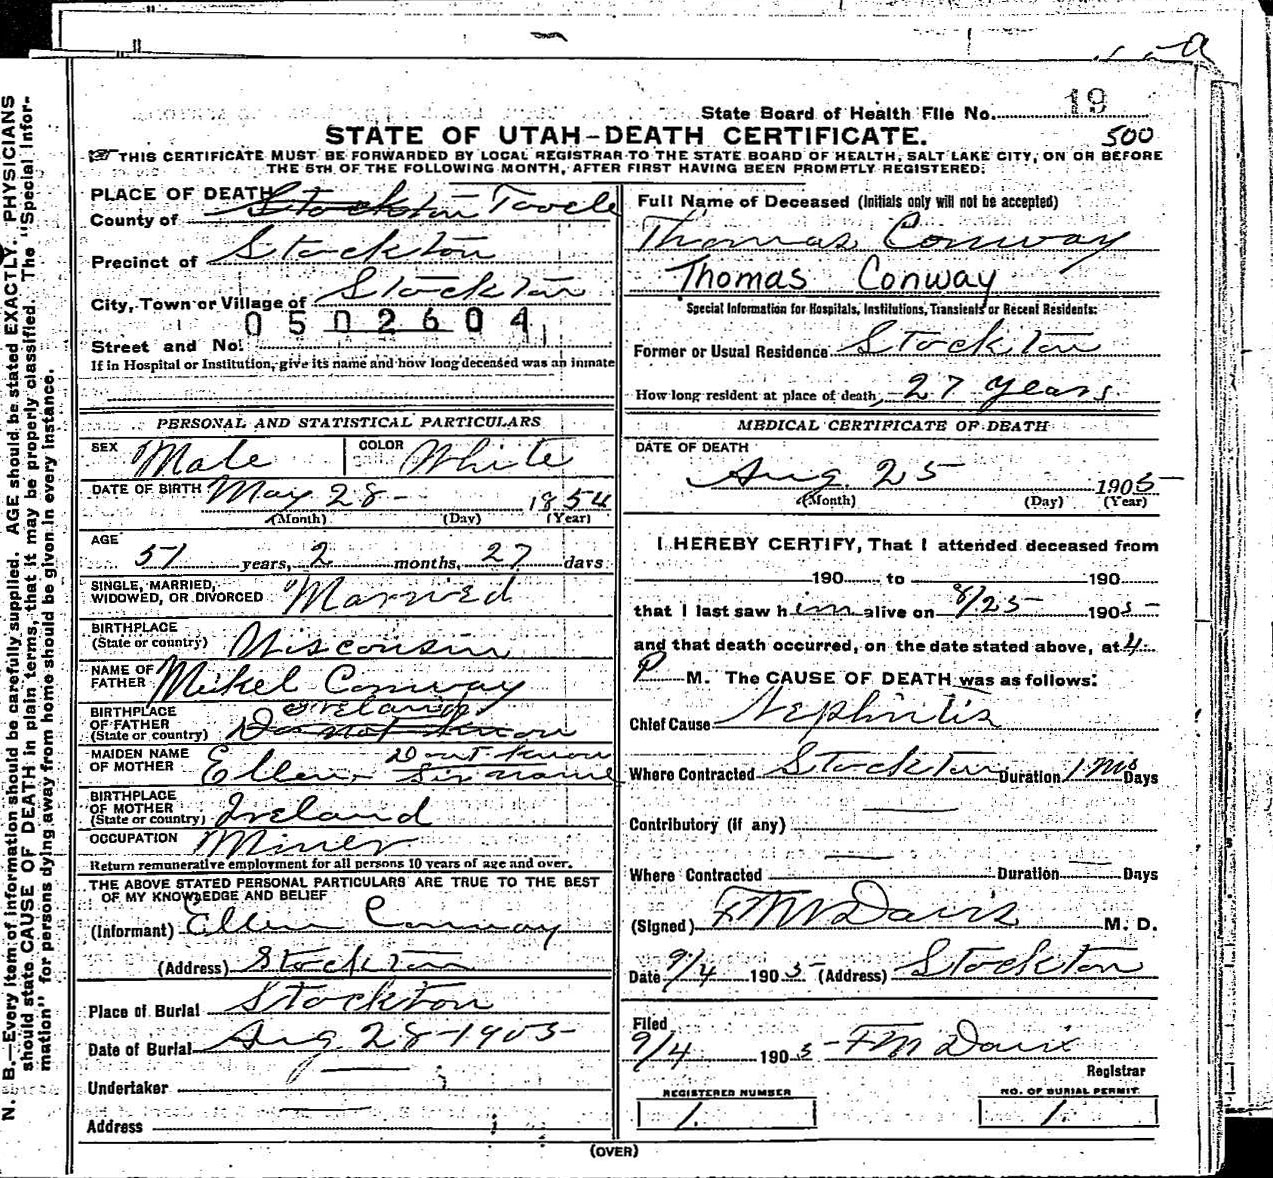 State Board of Health File No. 19
STATE OF UTAH-DEATH CERTIFICATE. 500
THIS CERTIFICATE MUST BE FORWARDED BY LOCAL REGISTRAR TO THE STATE BOARD OF HEALTH, SALT LAKE CITY, ON OR BEFORE
THE 5TH OF THE FOLLOWING MONTH, AFTER FIRST HAVING BEEN PROMPTLY REGISTERED.
PLACE OF DEATH
County of Stockton Tooele
Precinct of Stockton
City, Town or Village of Stockton
0502604
Street and No.
If in Hospital or Institution, give its name and how long deceased was an inmate
PERSONAL AND STATISTICAL PARTICULARS
SEX Male COLOR White
DATE OF BIRTH May 28 - 1854
(Month) (Day) (Year)
AGE 51 years, 2 months, 27 days
SINGLE, MARRIED,
WIDOWED, OR DIVORCED Married
BIRTHPLACE
(State or country) Wisconsin
NAME OF
FATHER Mikel Conway
BIRTHPLACE Ireland
OF FATHER
(State or country) Do not know
MAIDEN NAME Dont know
OF MOTHER Ellen Sir name
BIRTHPLACE
OF MOTHER
(State or country) Ireland
OCCUPATION Miner
Return remunerative employment for all persons 10 years of age and over.
THE ABOVE STATED PERSONAL PARTICULARS ARE TRUE TO THE BEST
OF MY KNOWLEDGE AND BELIEF
(Informant) Ellen Conway
(Address) Stockton
Place of Burial Stockton
Date of Burial Aug 28-1905
Undertaker
Address
Full Name of Deceased (Initials only will not be accepted)
Thomas Conway
Thomas Conway
Special Information for Hospitals, Institutions, Transients or Recent Residents:
Former or Usual Residence Stockton
How long resident at place of death, 27 years
MEDICAL CERTIFICATE OF DEATH
DATE OF DEATH
Aug. 25 1905
(Month) (Day) (Year)
I HEREBY CERTIFY, That I attended deceased from
190 to 190
that I last saw him alive on 8/25 1905
and that death occurred, on the date stated above, at 4
P M. The CAUSE OF DEATH was as follows:
Chief Cause Nephritis
Where Contracted Stockton Duration 1 Mo Days
Contributory (if any)
Where Contracted Duration Days
(Signed) F M Davis M. D.
Date 9/4 1905 (Address) Stockton
Filed
9/4 1905 F M Davis
Registrar
REGISTERED NUMBER
1.
NO. OF BURIAL PERMIT
1.
(OVER)
N. B.—Every item of information should be carefully supplied. AGE should be stated EXACTLY. PHYSICIANS
should state CAUSE OF DEATH in plain terms, that it may be properly classified. The "Special Infor-
mation" for persons dying away from home should be given in every instance.